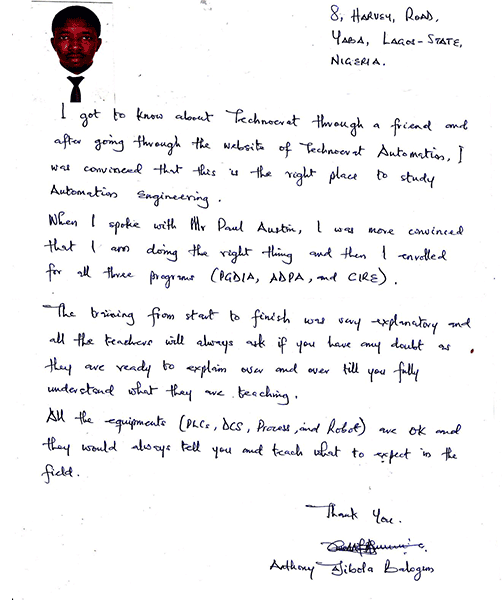 8, Harvey, Road,
Yaba, Lagos-State,
Nigeria.
I got to know about Technocrat through a friend and
after going through the website of Technocrat Automation, I
was convinced that this is the right place to study
Automation Engineering.
When I spoke with Mr Paul Austin, I was more convinced
that I am doing the right thing and then I enrolled
for all three programs (PGDIA, ADPA, and CIRE).
The training from start to finish was very explanatory and
all the teachers will always ask if you have any doubt as
they are ready to explain over and over till you fully
understand what they are teaching.
All the equipments (PLCs, DCS, Process, and Robot) are OK and
they would always tell you and teach what to expect in the
field.
Thank You.
Anthony Ajibola Balogun